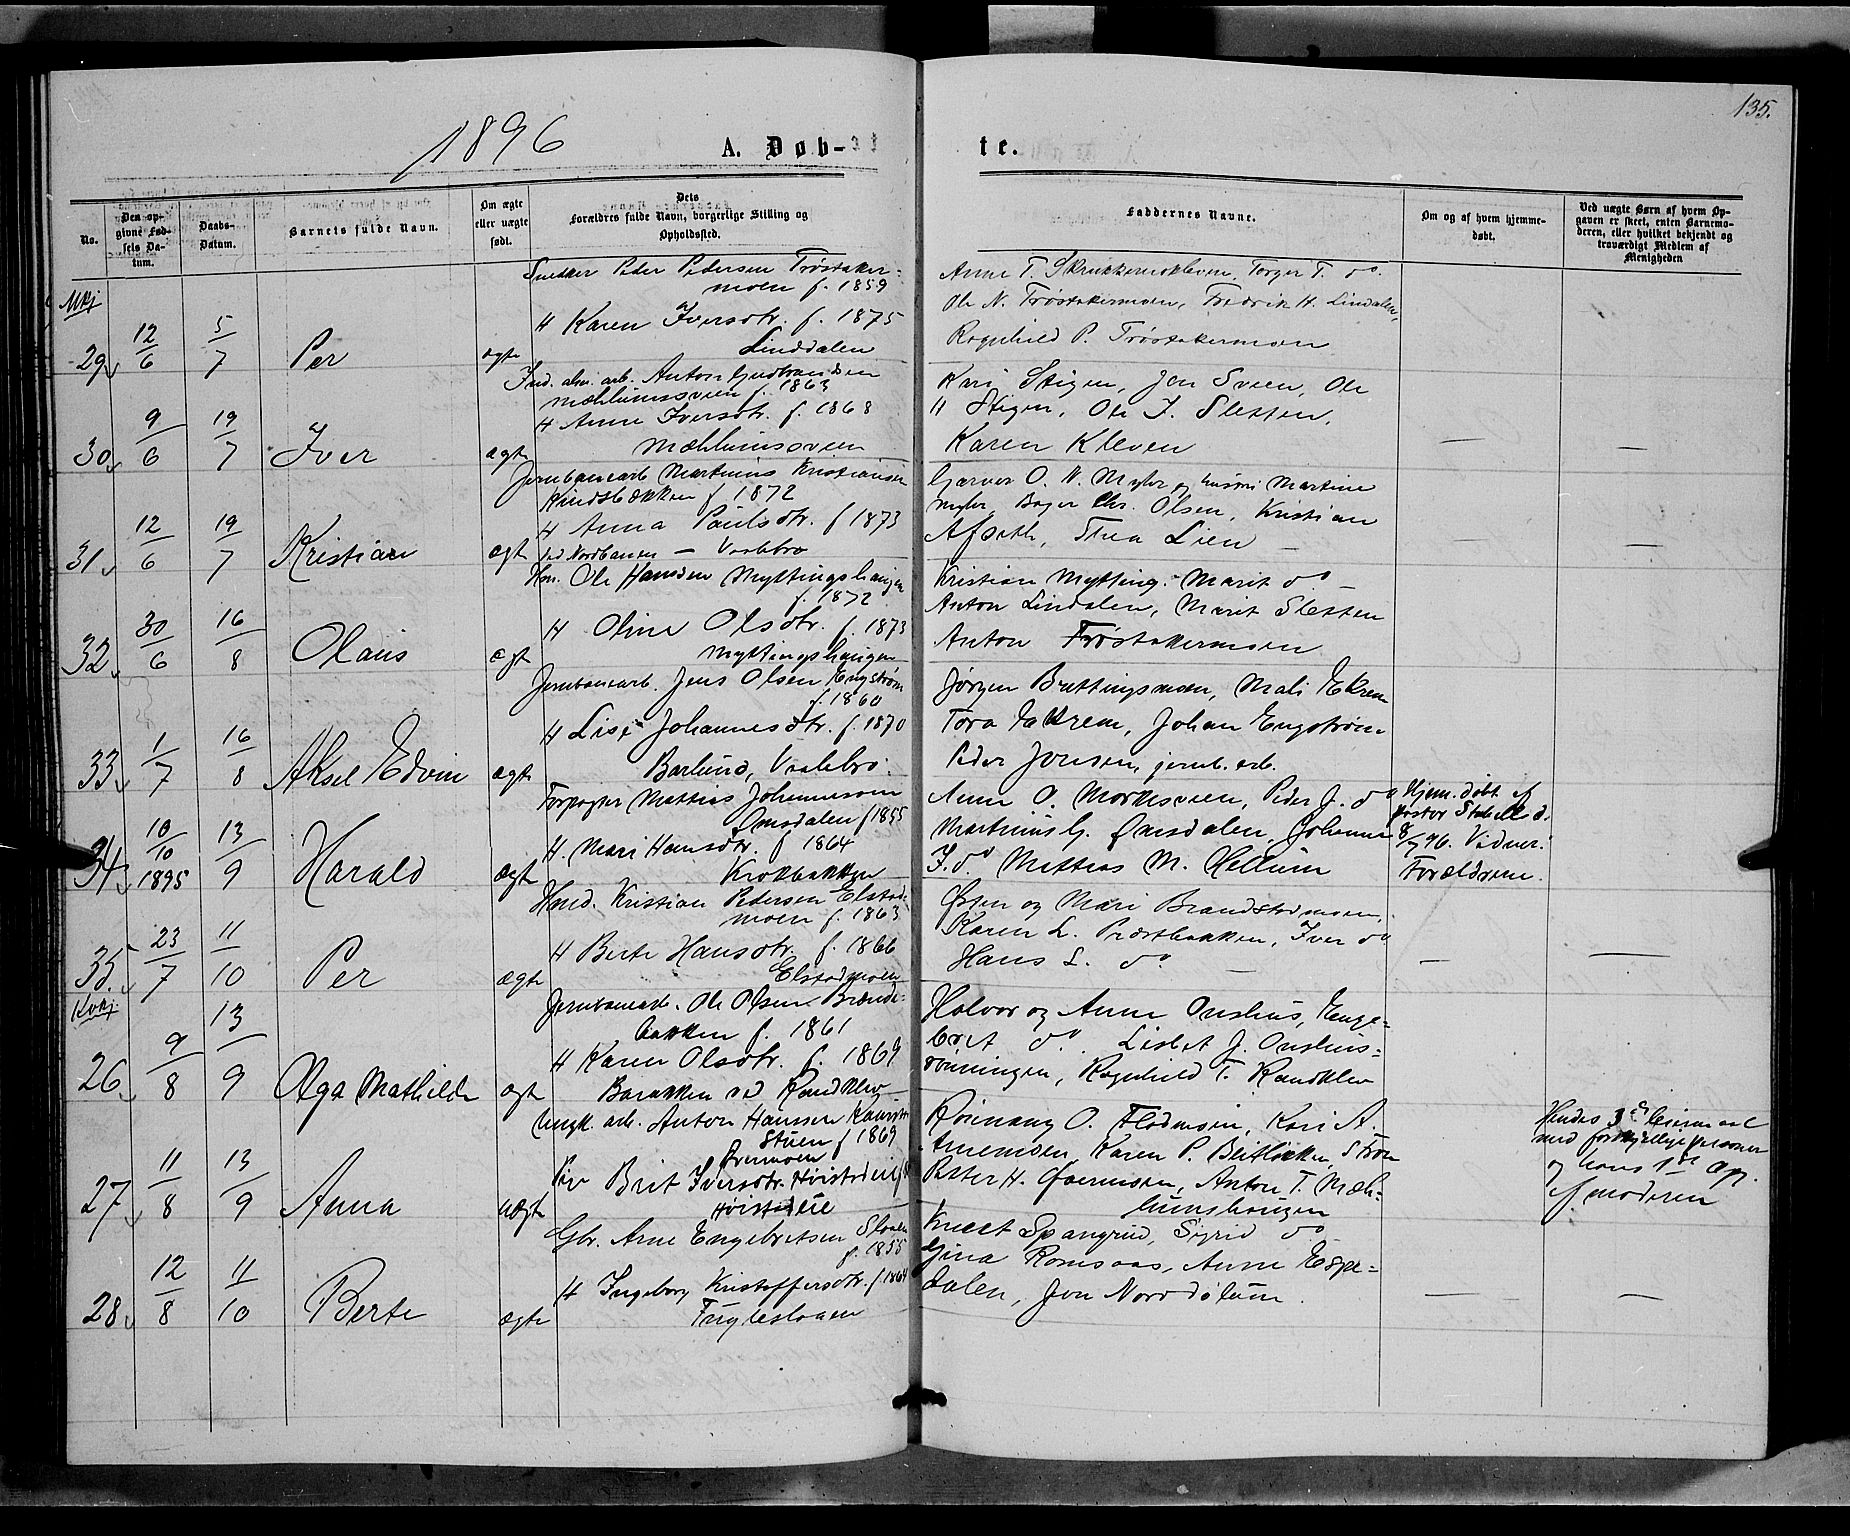 135.
1896
A. Døb-
te.
No.
Den op-
givne Fød-
sels Da-
tum.
Daabs-
Datum.
Barnets fulde Navn.
Om ægte
eller uægte
født.
Dets
Forældres fulde Navn, borgerlige Stilling og
Opholdssted.
Faddernes Navne.
Om og af hvem hjemme-
døbt.
Ved uægte Børn af hvem Op-
gaven er skeet, enten Barnemo-
deren, eller hvilket bekjendt og
troværdigt Medlem af
Menigheden
29
12/6
5/7
Per
ægte
Snedker Peder Pedersen Trøstaker-
moen f. 1859
H Karen Iversdtr. f. 1875
Linddalen
Anne T. Skrukkemokleven, Torger T. do.
Ole N. Trøstakermoen, Fredrik H. Lindalen,
Ragnhild P. Trøstakermoen
30
9/6
19/7
Iver
ægte
Ind. alm. arb. Anton Gudbrandsen
Mæhlumssveen f. 1863
H Anne Iversdtr. f. 1868
Mæhlumssveen
Kari Stigen, Jon Sveen, Ole
H Stigen, Ole J. Sletten,
Karen Kleven
31
12/6
19/7
Kristian
ægte
Jernbanearb Martinius Kristiansen
Kindsbækken f 1872
H Anna Paulsdtr. f 1873
ved Nordbanen - Vaalebro
Garver O. N. Myhr og hustru Martine
Myhr, Bager Chr. Olsen, Kristian
Afseth, Thea Lien
32
30/6
16/8
Olaus
ægt
Hm. Ole Hansen Myttingshaugen
f. 1872
H Oline Olsdtr. f. 1873
Myttingshaugen
Kristian Mytting, Marit do
Anton Lindalen, Marit Sletten
Anton Trøstakermoen
33
1/7
16/8
Aksel Edvin
ægte
Jernbanearb. Jens Olsen Engstrøm
f. 1860
H Lise Johannesdtr. f. 1870
Barlund, Vaalebro.
Jørgen Bryttingsmoen, Mali Ekrem
Tora Ekrem, Johan Engstrøm
Peder Jensen, jernb. arb.
34
10/10 1895
13/9
Harald
ægte
Forpagter Mattias Johannessen
Onsdalen f 1855
H. Mari Hansdtr. f 1864
Krokbakken
Anne O. Morksveen, Peder J. do
Martinius G. Onsdalen, Johanne
J. do Mattias M. Hellum
Hjem. døbt af
pastor Stabell d.
8/7 96. Vidner:
Forældrene.
35.
23/7
11/10
Per
ægte
Hmd. Kristian Pedersen Elstad-
moen f. 1863
H Berte Hansdtr. f. 1866
Elstadmoen
Østen og Mari Brandstadmoen,
Karen L. Præstbakken, Iver do
Hans L. do
26
9/8
13/9
Olga Mathilde
ægte
Jernbanearb. Ole Olsen Brænde-
bakken f. 1861
H Karen Olsdtr. f. 1869
Barakken ved Randklev
Halvor og Anne Onshus, Enge-
bret do. Lisbet J. Onshus-
rønningen, Ragnhild T. Randklev
27
11/8
13/9
Anna
uægte
Ungk. arb. Anton Hanssen
Stuen f 1869
Øvermoen
Pige Brit Iversdtr.
Karen P. Beitlikken,
Petter H. Øvermoen, Anton T. Mæh-
lumshaugen
Hendes 3die leiermaal
med forskjellige personer
og hans 1ste Opg.
af moderen
28
12/8
11/10
Berte
ægte
Gbr. Arne Engebretsen Sloaen
f. 1855
H Ingeborg Kristoffersdtr. f 1864
Fuglesloaen
Knut Spangrud, Sigrid do
Gina Romsaas, Anne Espe-
dalen, Jon Norddølum.